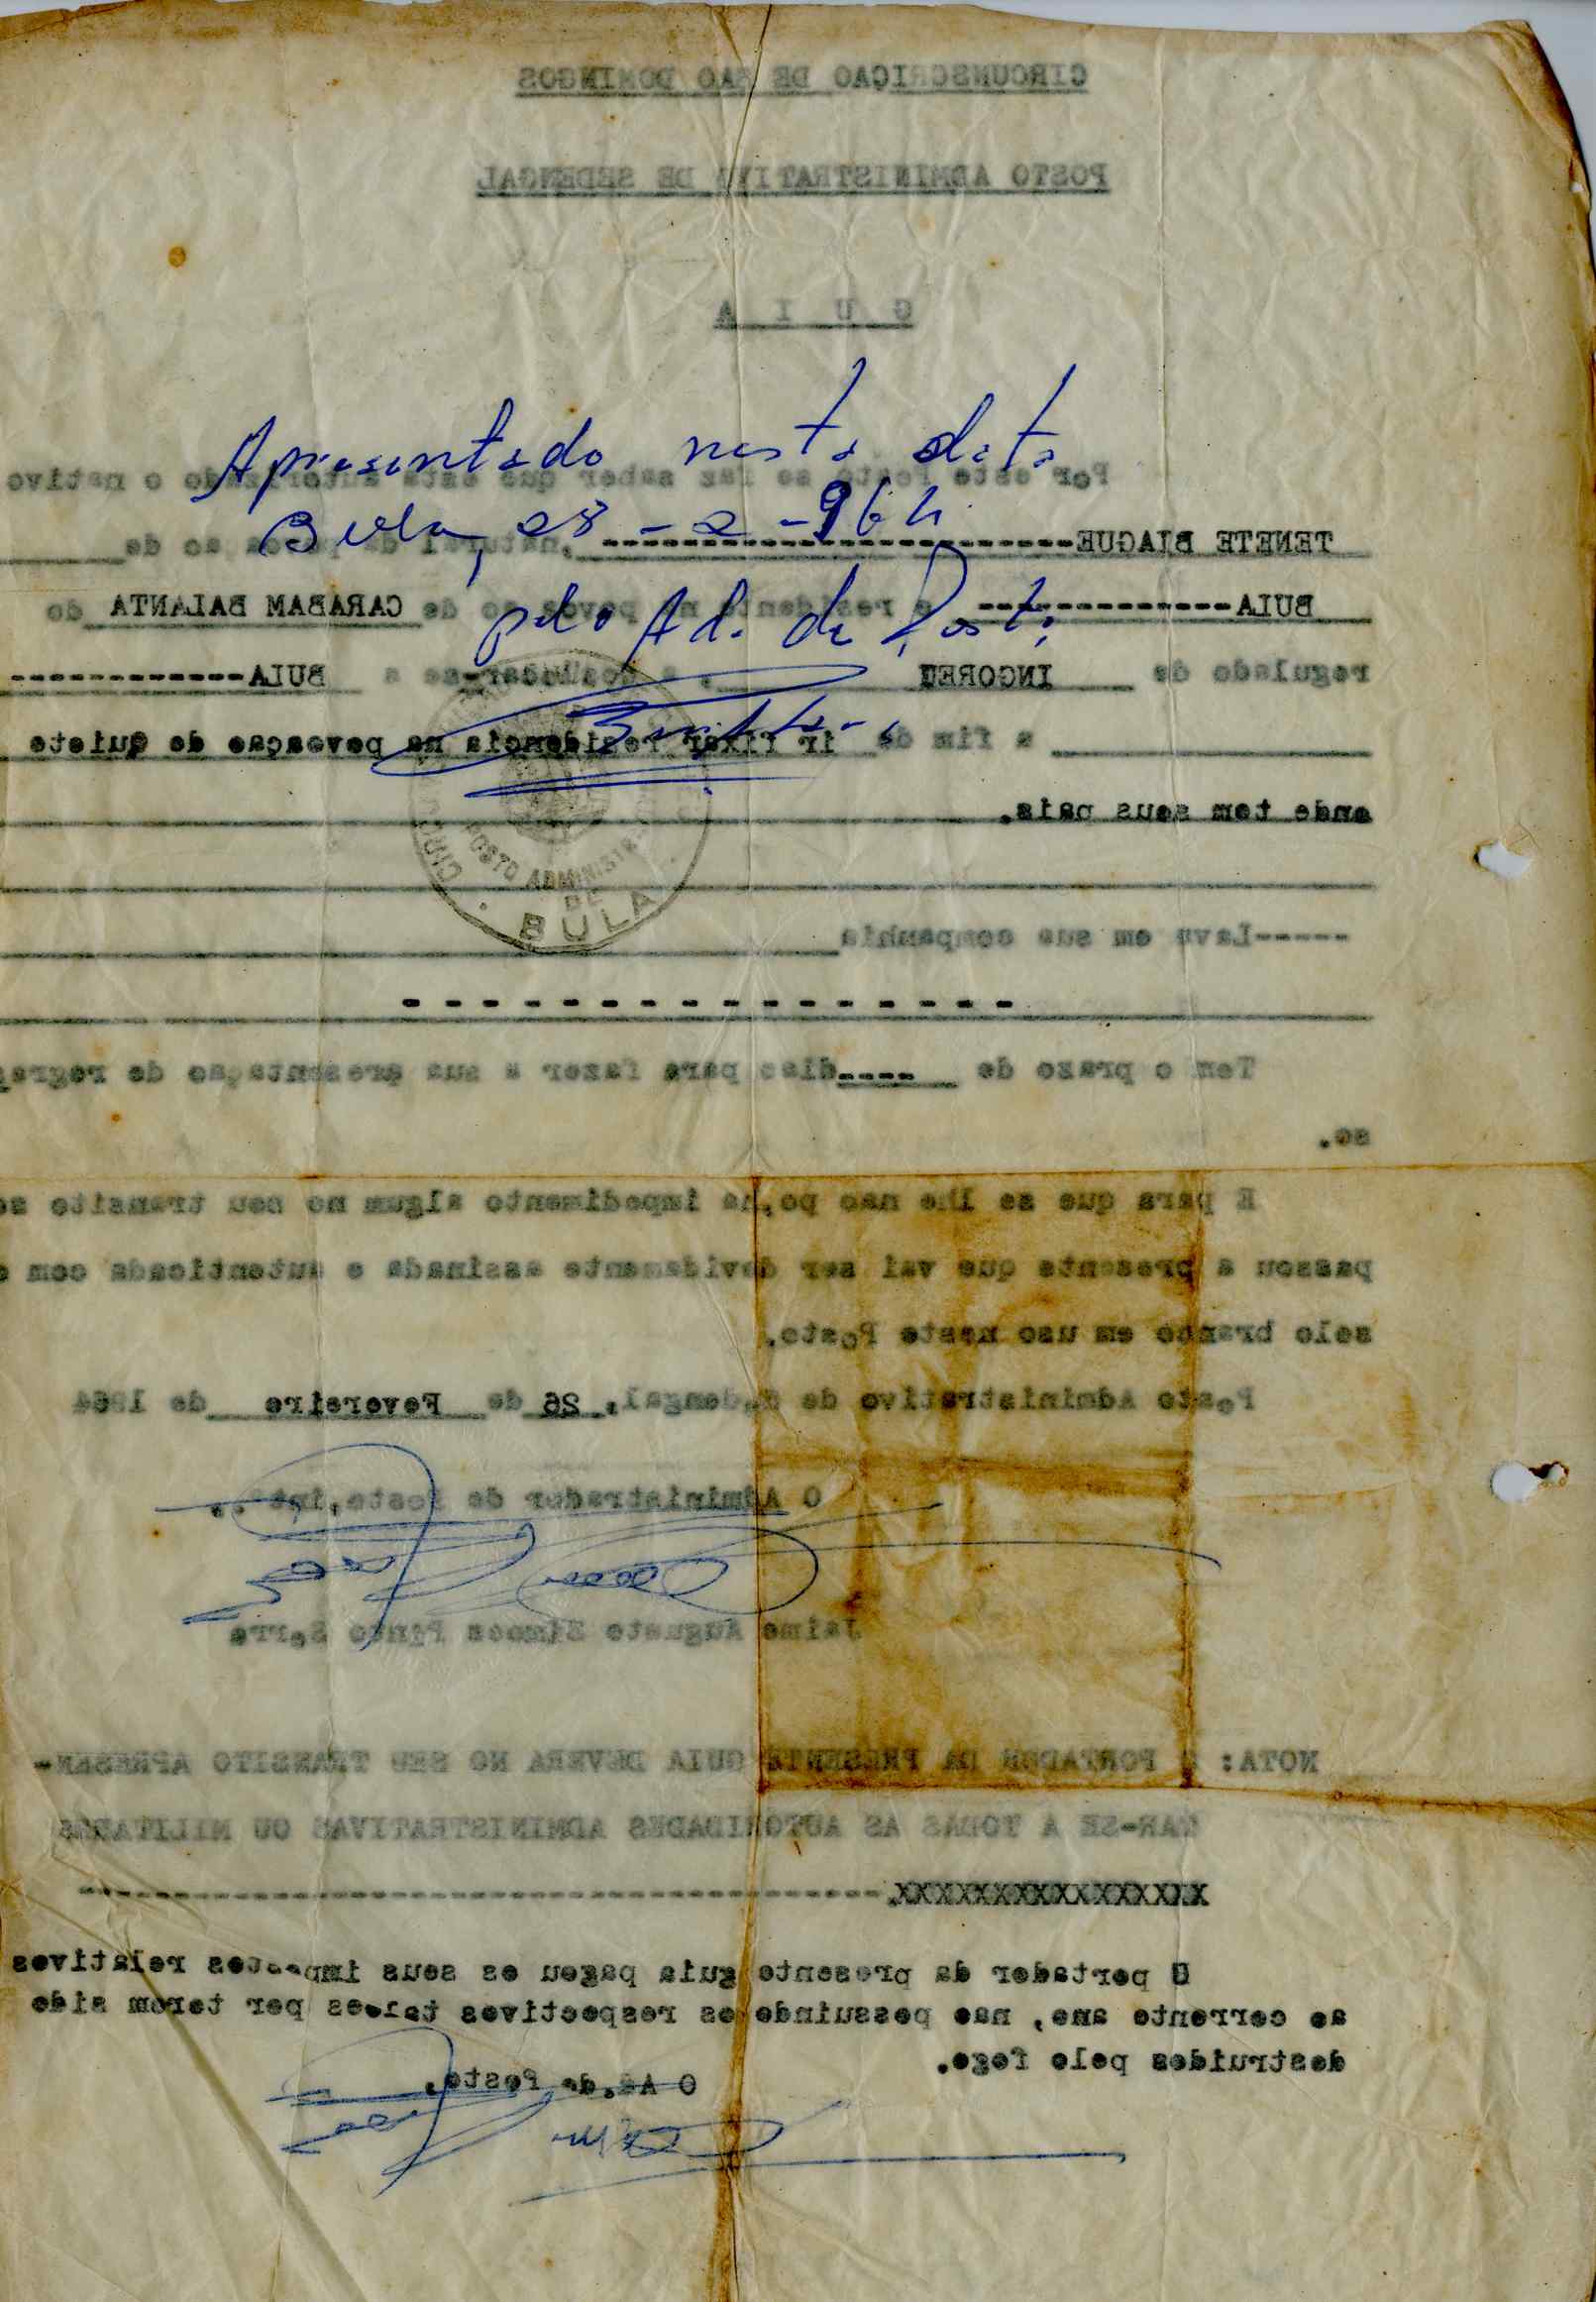 CIRCUNSCRIÇAO DE SAO DOMINGOS
POSTO ADMINISTRATIVO DE SEDENGAL
G U I A
Apresentado nesta data
Por este Posto se faz saber que está autorizado o nativo
Bula, 28-2-964
TENETE BIAGUE------------------------,natural da povoa ao de
pelo Ad. de Posto
BULA------------- e residente na povoa ao de CARABAM BALANTA do
regulado de INGOREU , a deslocar-se a BULA------------
a fim de ir fixar residencia na povoaçao de Quiete
onde tem seus pais.
POSTO ADMINISTRATIVO
DE
BULA
-----Leva em sua companhia
- - - - - - - - - - - - - - - -
Tem o prazo de ---- dias para fazer a sua apresentaçao de regres
so.
E para que se lhe nao ponha impedimento algum no seu transito se
passou a presente que vai ser devidamente assinada e autenticada com o
selo branco em uso neste Posto.
Posto Administrativo de Sedengal, 26 de Fevereiro de 1964
O Administrador de Posto,intº.,
Jaime Augusto Simoes Pinto Serra
NOTA: O PORTADOR DA PRESENTE GUIA DEVERA NO SEU TRANSITO APRESEN-
TAR-SE A TODAS AS AUTORIDADES ADMINISTRATIVAS OU MILITARES
XXXXXXXXXXXXXXXXX.--------------------------------------------
O portador da presente guia pagou os seus impostos relativos
ao corrente ano, nao possuindo os respectivos taloes por terem sido
destruidos pelo fogo.
O Ad.de Posto,